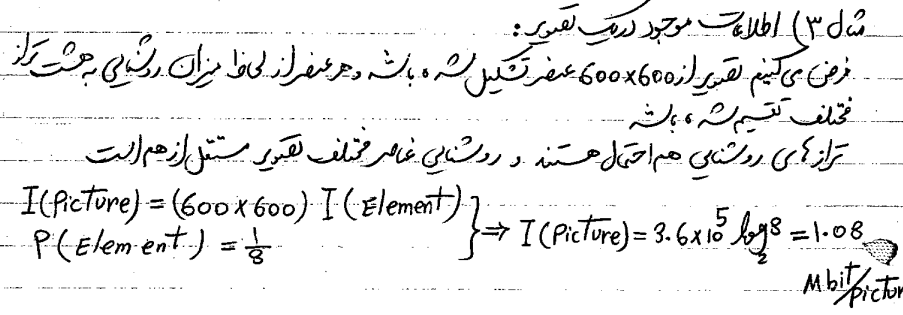 مثال ۳) اطلاعات موجود در یک تصویر:
فرض می کنیم تصویر از 600x600 عنصر تشکیل شده باشد و هر عنصر از لحاظ میزان روشنایی به هشت تراز
مختلف تقسیم شده باشد
ترازهای روشنایی هم احتمال هستند و روشنایی عناصر مختلف تصویر مستقل از هم است
I(Picture) = (600x600) I(Element)
P(Element) = 1/8 } ⇒ I(Picture) = 3.6x10⁵ log₂8 = 1.08
Mbit/pictur